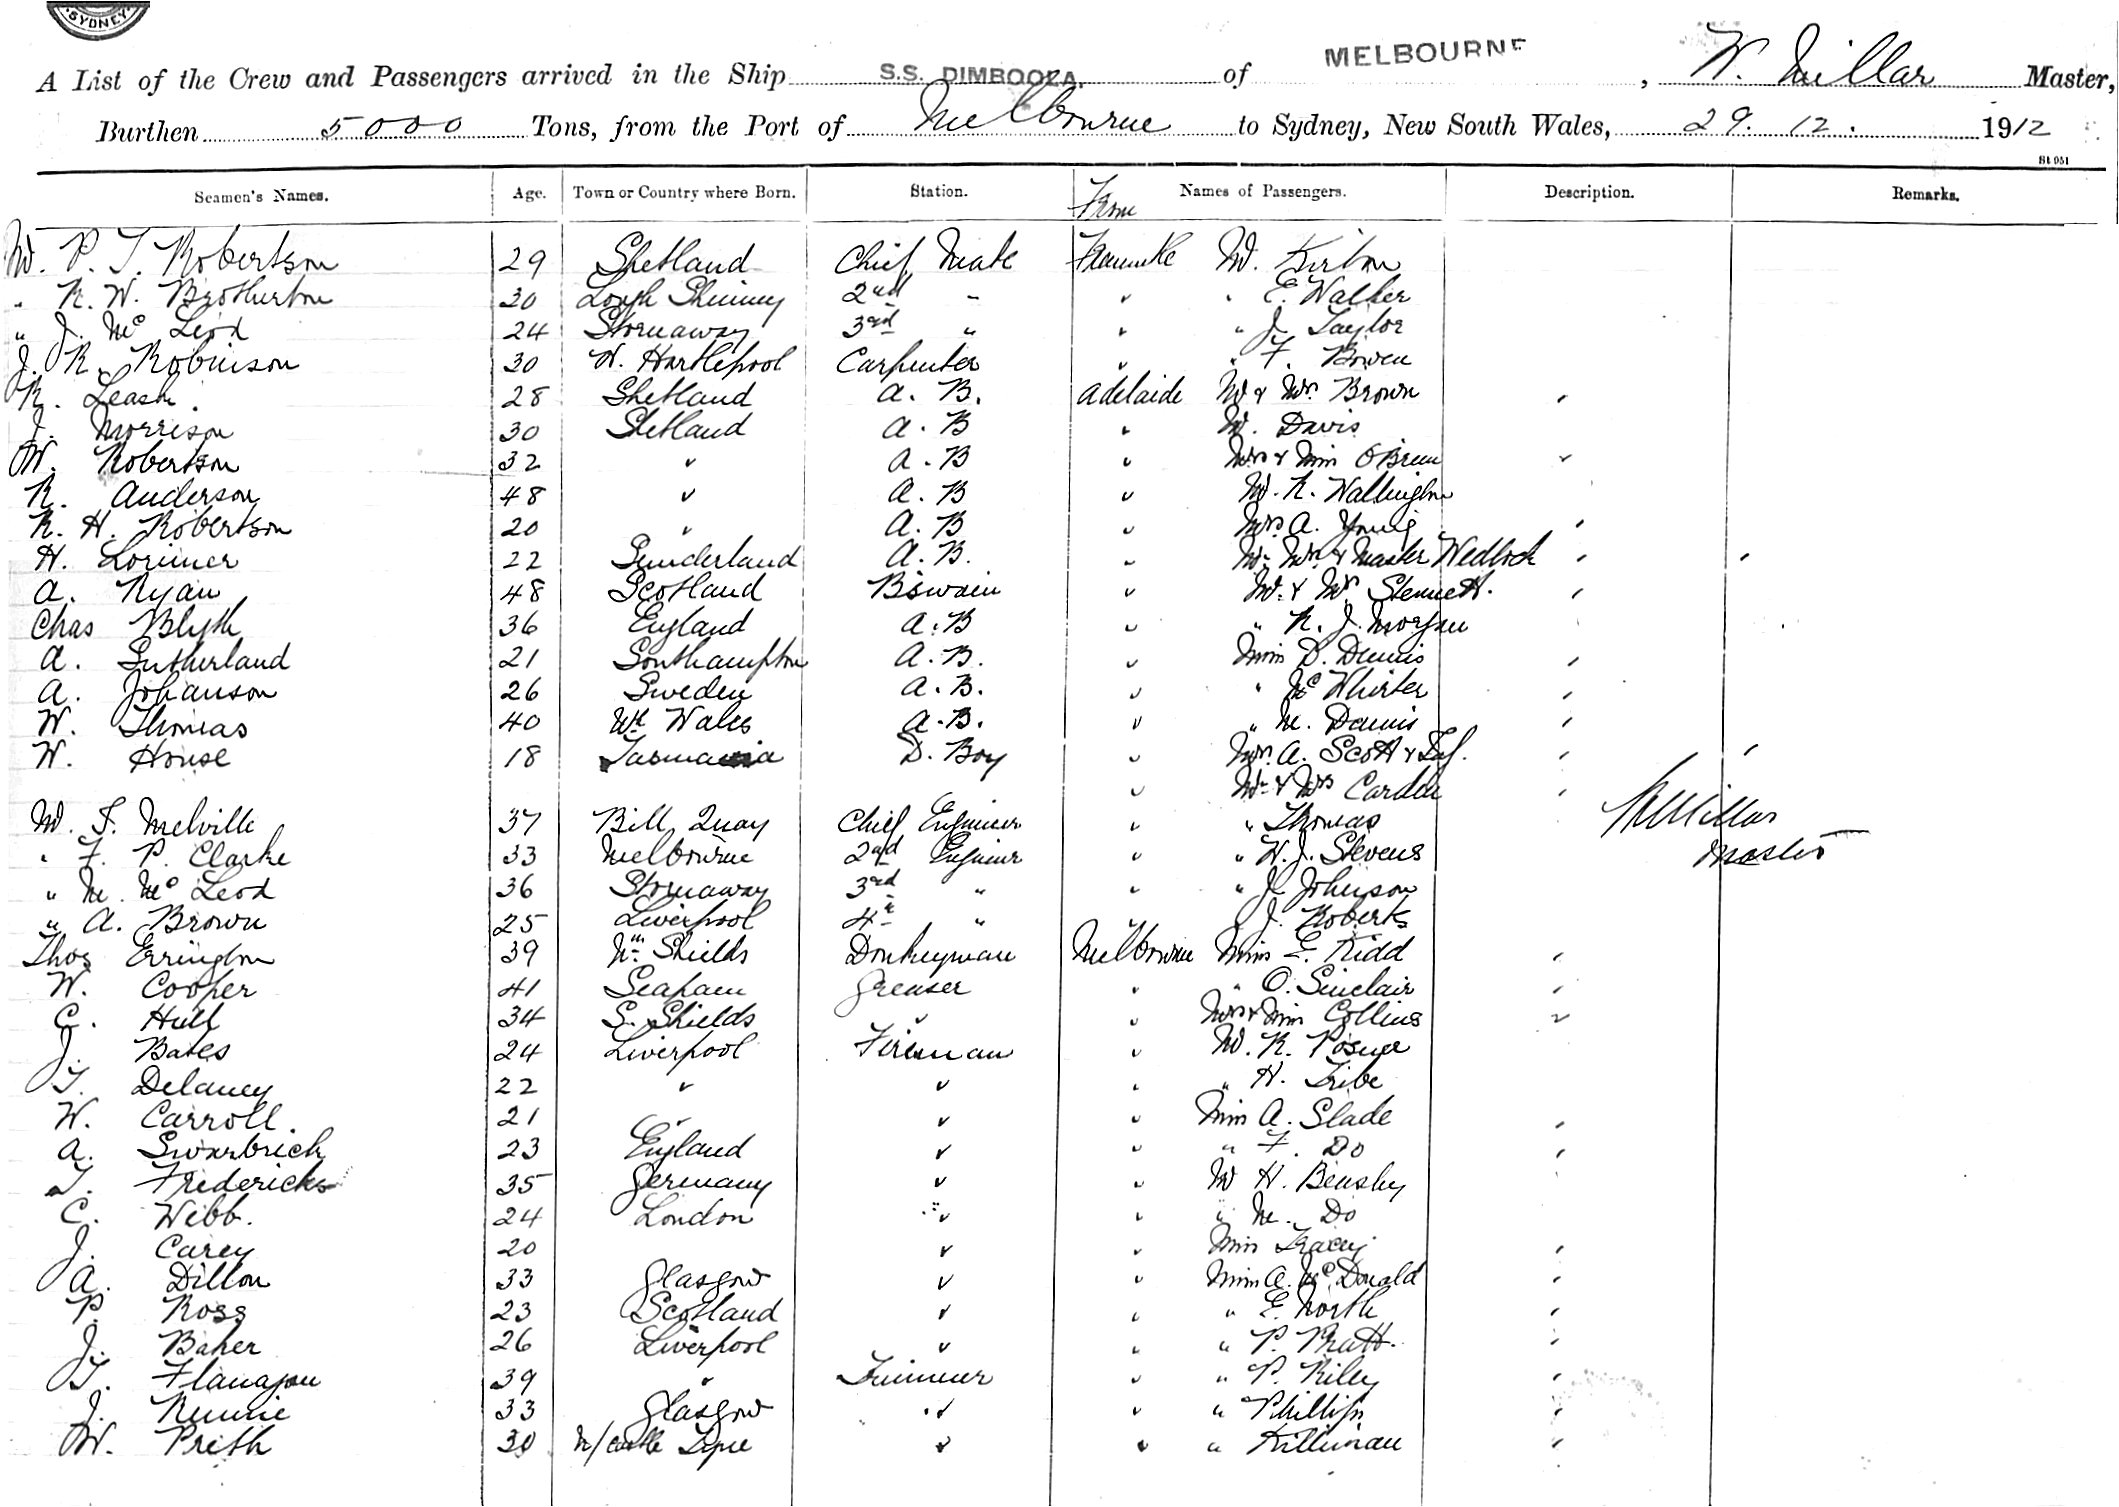 SYDNEY
A List of the Crew and Passengers arrived in the Ship S.S. DIMBOOLA. of MELBOURNE, W. Millar Master,
Burthen 5000 Tons, from the Port of Melbourne to Sydney, New South Wales, 29. 12. 1912
St 051
Seamen's Names. Age. Town or Country where Born. Station. From Names of Passengers. Description. Remarks.
Mr. P. T. Robertson 29 Shetland Chief Mate Fremantle Mr. Kirton
" R. W. Brotherton 30 Lough Shinny 2nd " " " E. Walker
" J. Mc Leod 24 Stornaway 3rd " " " J. Taylor
J. R. Robinson 30 W. Hartlepool Carpenter " " F. Bowen
R. Leask. 28 Shetland A. B. Adelaide Mr & Mrs Brown
J. Morrison 30 Shetland A. B " Mr. Davis
W. Robertson 32 " A. B " Mrs & Miss O'Brien
R. Anderson 48 " A. B " Mr. R. Wallington
R. H. Robertson 20 " A. B " Mrs A. Young
H. Lorimer 22 Sunderland A. B. " Mr. Mrs & Master Wedlock
A. Ryan 48 Scotland B'swain " Mr. & Mrs Stennett.
Chas Blyth 36 England A. B " " R. J. Morgan
A. Sutherland 21 Southampton A. B. " Miss D. Dennis
A. Johanson 26 Sweden A. B. " " Mc Whirter
W. Thomas 40 Wales A. B. " " M. Dennis
W. House 18 Tasmania D. Boy " Mrs. A. Scott & Inf.
" Mr & Mrs Carden
Mr. F. Melville 37 Bill Quay Chief Engineer " " Thomas
" F. P. Clarke 33 Melbourne 2nd Engineer " " W. J. Stevens
" M. Mc Leod 36 Stornaway 3rd " " " J. Johnson
" A. Brown 25 Liverpool 4th " " " J. Roberts
Thos Errington 39 Nth Shields Donkeyman Melbourne Miss E. Kidd
W. Cooper 41 Seaham Greaser " " O. Sinclair
C. Hull 34 S. Shields " " Mrs & Miss Collins
J. Bates 24 Liverpool Fireman " Mr. R. Posner
T. Delaney 22 " " " " H. Tribe
W. Carroll. 21 " " " Miss A. Slade
A. Swarbrick 23 England " " " F. Do
T. Fredericks 35 Germany " " Mr H. Bensley
C. Webb. 24 London " " " M. Do
J. Carey 20 " " Miss Tracey
A. Dillon 33 Glasgow " " Miss A. Mc Donald
P. Ross 23 Scotland " " " E. North
J. Baker 26 Liverpool " " " P. Pratt.
T. Flanagan 39 " Trimmer " " P. Riley
J. Rennie 33 Glasgow " " " Phillips
W. Preth 30 N/castle Tyne " " " Killinan
W Millar
Master